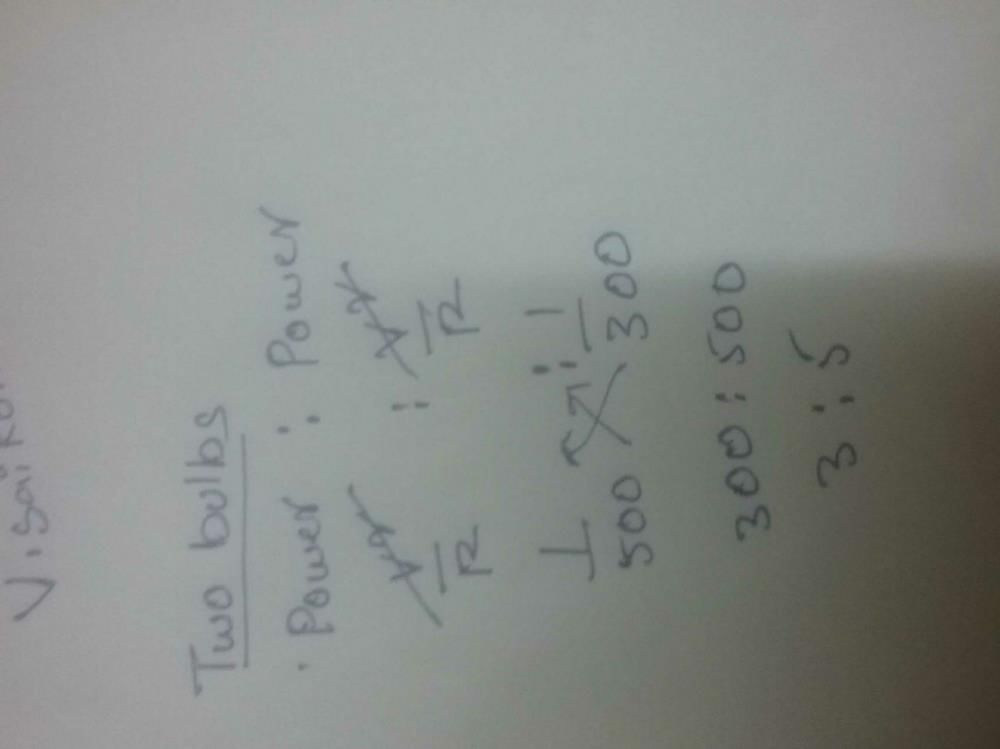 Two bulbs
. Power : Power
V²/R : V²/R
1/500 : 1/300
300 : 500
3 : 5